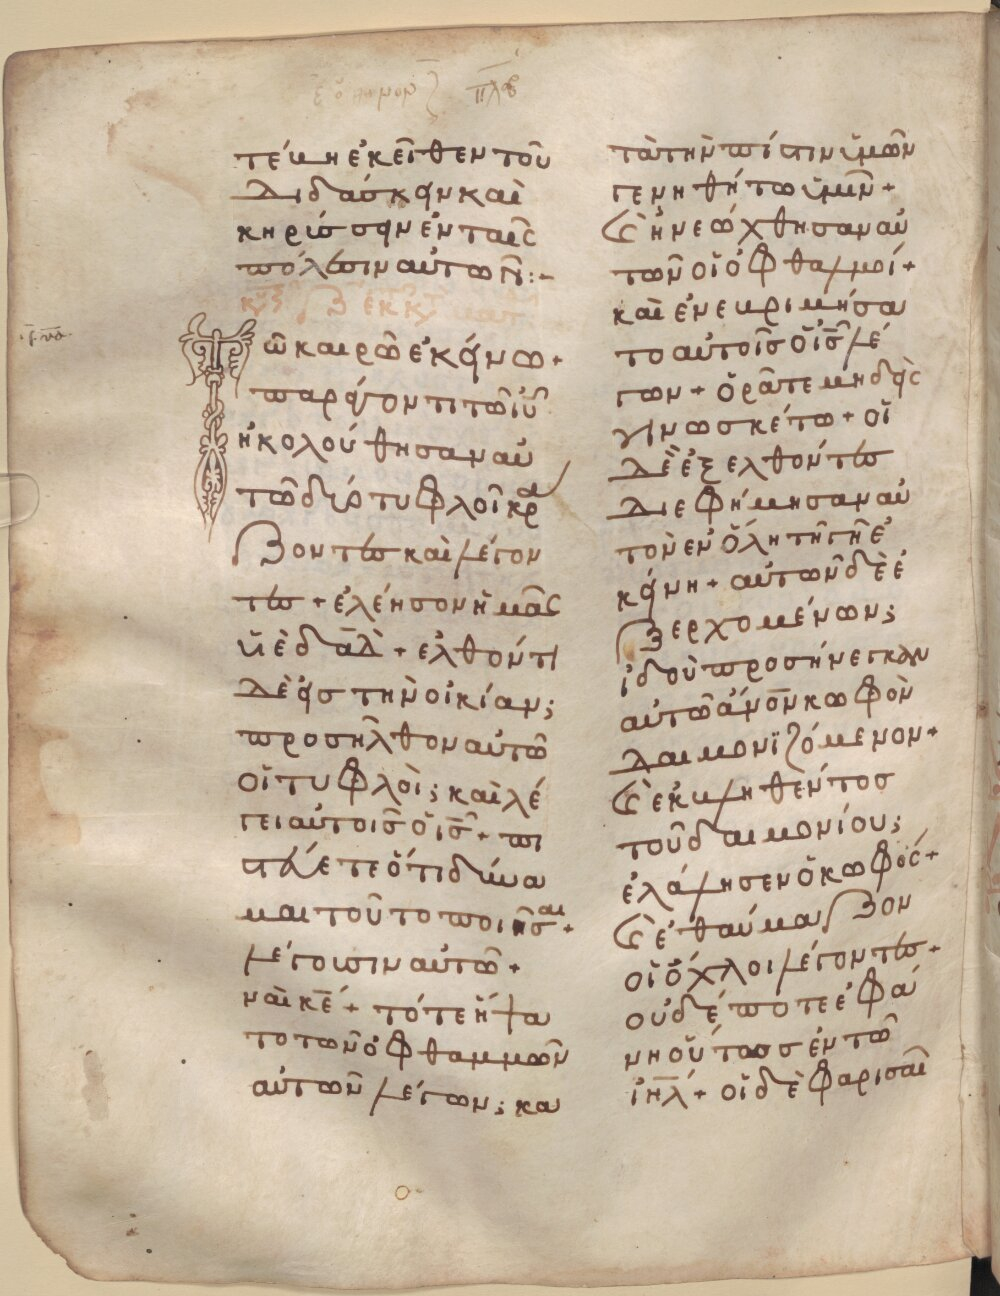 τέβη ἐκεῖθεν τοῦ
διδάσκην καὶ
κηρίσσην ἐν ταῖς
πόλεσιν αὐτῶν:-
Τῶ καιρῶ ἐκείνω +
παράγοντι τῶ ἰυ
ἠκολούθησαν αὐ
τῶ δύο τυφλοὶ κρα
ζοντες καὶ λέγον
τες + ἐλέησον ἡμᾶς
ὑὲ δαδ + ἐλθόντι
δὲ εἰς τὴν οἰκίαν;
προσῆλθον αὐτῶ
οἱ τυφλοὶ; καὶ λέ
γει αὐτοῖς ὁ ις + πι
στεύετε ὅτι δύνα
μαι τοῦτο ποιῆσαι +
λέγουσιν αὐτῶ +
ναὶ κε + τότε ἥψα
το τῶν ὀφθαλμῶν
αὐτῶν λέγων; κα
τὰ τὴν πίστιν ὑμῶν
γενηθήτω ὑμῖν +
καὶ ἠνεώχθησαν αὐ
τῶν οἱ ὀφθαλμοί +
καὶ ἐνεβριμήσα
το αὐτοῖς ὁ ις λέ
γων + ὁρᾶτε μηδεὶς
γινωσκέτω + οἱ
δὲ ἐξελθόντες
διεφήμησαν αὐ
τὸν ἐν ὅλη τῆ γῆ ἐ
κείνη + αὐτῶν δὲ ἐ
ξερχομένων;
ἰδοὺ προσήνεγκαν
αὐτῶ ἄνον κωφὸν
δαιμονϊζόμενον +
καὶ ἐκβληθέντος
τοῦ δαιμονίου;
ἐλάλησεν ὁ κωφός +
καὶ ἐθαύμαζον
οἱ ὄχλοι λέγοντες +
οὐδέποτε ἐφά
νη οὕτως ἐν τῶ
ἰηλ + οἱ δὲ φαρισαῖ